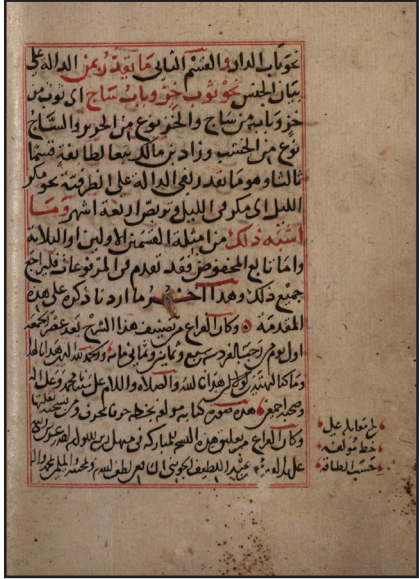 نحو باب الدار والقسم الثاني ما يقدر بمن الدالة على
بيان الجنس نحو ثوب خز وباب ساج اي ثوب من
خز وباب من ساج والخز نوع من الحرير والساج
نوع من الخشب وزاد بن مالك تبعا لطائفة قسما
ثالثا وهو ما يقدر بفي الدالة على الظرفية نحو مكر
الليل اي مكر في الليل وتربص اربعة اشهر وما
اشبه ذلك من امثلة القسمين الاولين او الثلاثة
واما تابع المخفوض فقد تقدم في المرفوعات فليراجع
جميع ذلك وهذا آخر ما اردنا ذكره على هذه
المقدمة وكان الفراغ من تصنيف هذا الشرح بعد عصر الجمعة
اول يوم من رجب الفرد سنة سبع وثمانين وثماني مائة والحمد لله الذي هدانا لهذا
وما كنا لنهتدي لولا ان هدانا الله والصلاة والسلام على سيدنا محمد وعلى اله
وصحبه اجمعين هذه صورة كتابة مؤلفه بخطه حرفا بحرف ومن نسخته نقلتها
وكان الفراغ من تعليق هذه النسخة المباركة في مستهل
على يد عبد اللطيف
بلغ مقابلة على
خط مؤلفه
حسب الطاقة